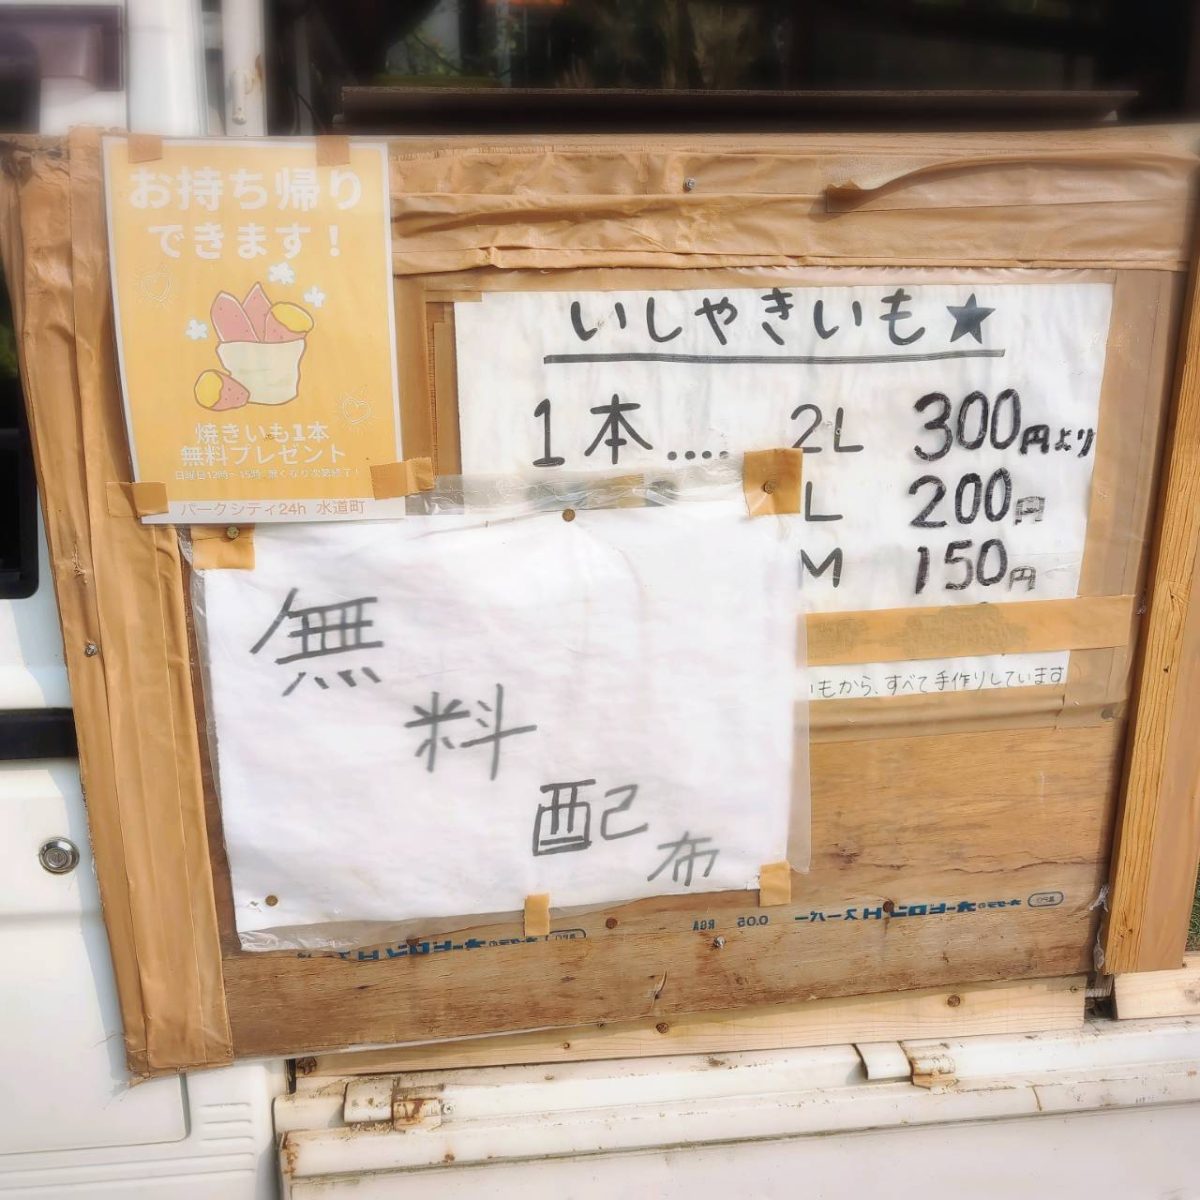 お持ち帰り
できます！
焼きいも1本
無料プレゼント
日曜日12時～15時 無くなり次第終了！
パークシティ24h 水道町
いしゃきいも★
1本.... 2L 300円より
L 200円
M 150円
いもから、すべて手作りしています
無
料
配
布